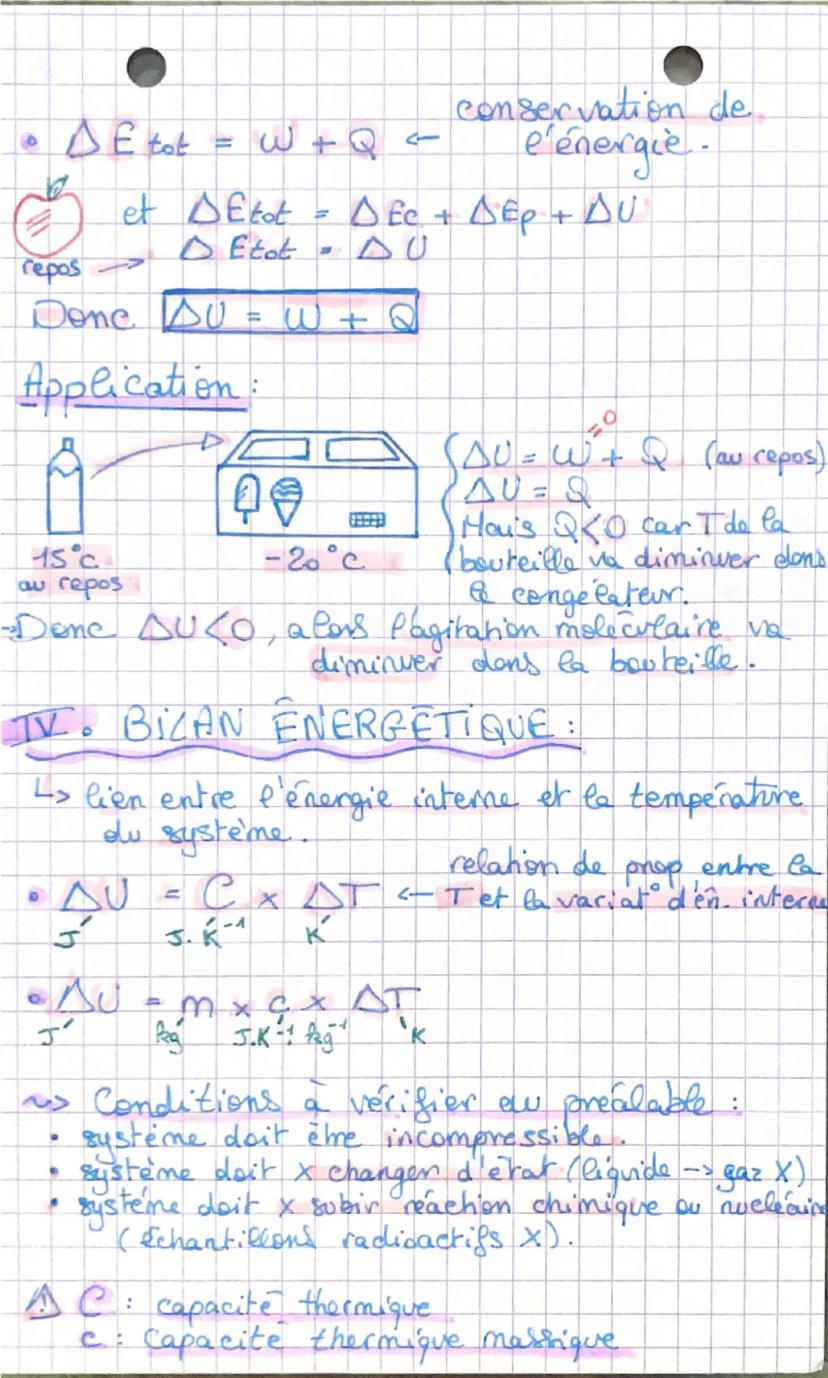 conservation de
• ΔEtot = W + Q ← l'énergie.
et ΔEtot = ΔEc + ΔEp + ΔU
repos → ΔEtot = ΔU
Donc ΔU = W + Q
Application :
=0
ΔU = W + Q (au repos)
ΔU = Q
Mais Q<0 car T de la
bouteille va diminuer dans
le congélateur.
15°c
au repos
-20°c
→Donc ΔU<0, alors l'agitation moléculaire va
diminuer dans la bouteille.
IV. BILAN ÉNERGÉTIQUE :
↳ lien entre l'énergie interne et la température
du système.
relation de prop entre la
• ΔU = C x ΔT ← T et la variat° d'én. interne
J J.K⁻¹ K
• ΔU = m x c x ΔT
J kg J.K⁻¹.kg⁻¹ K
~> Conditions à vérifier au préalable :
• système doit être incompressible.
• système doit x changer d'état (liquide → gaz X)
• système doit x subir réaction chimique ou nucléaire
(échantillons radioactifs X).
⚠ C : capacité thermique
c : capacité thermique massique